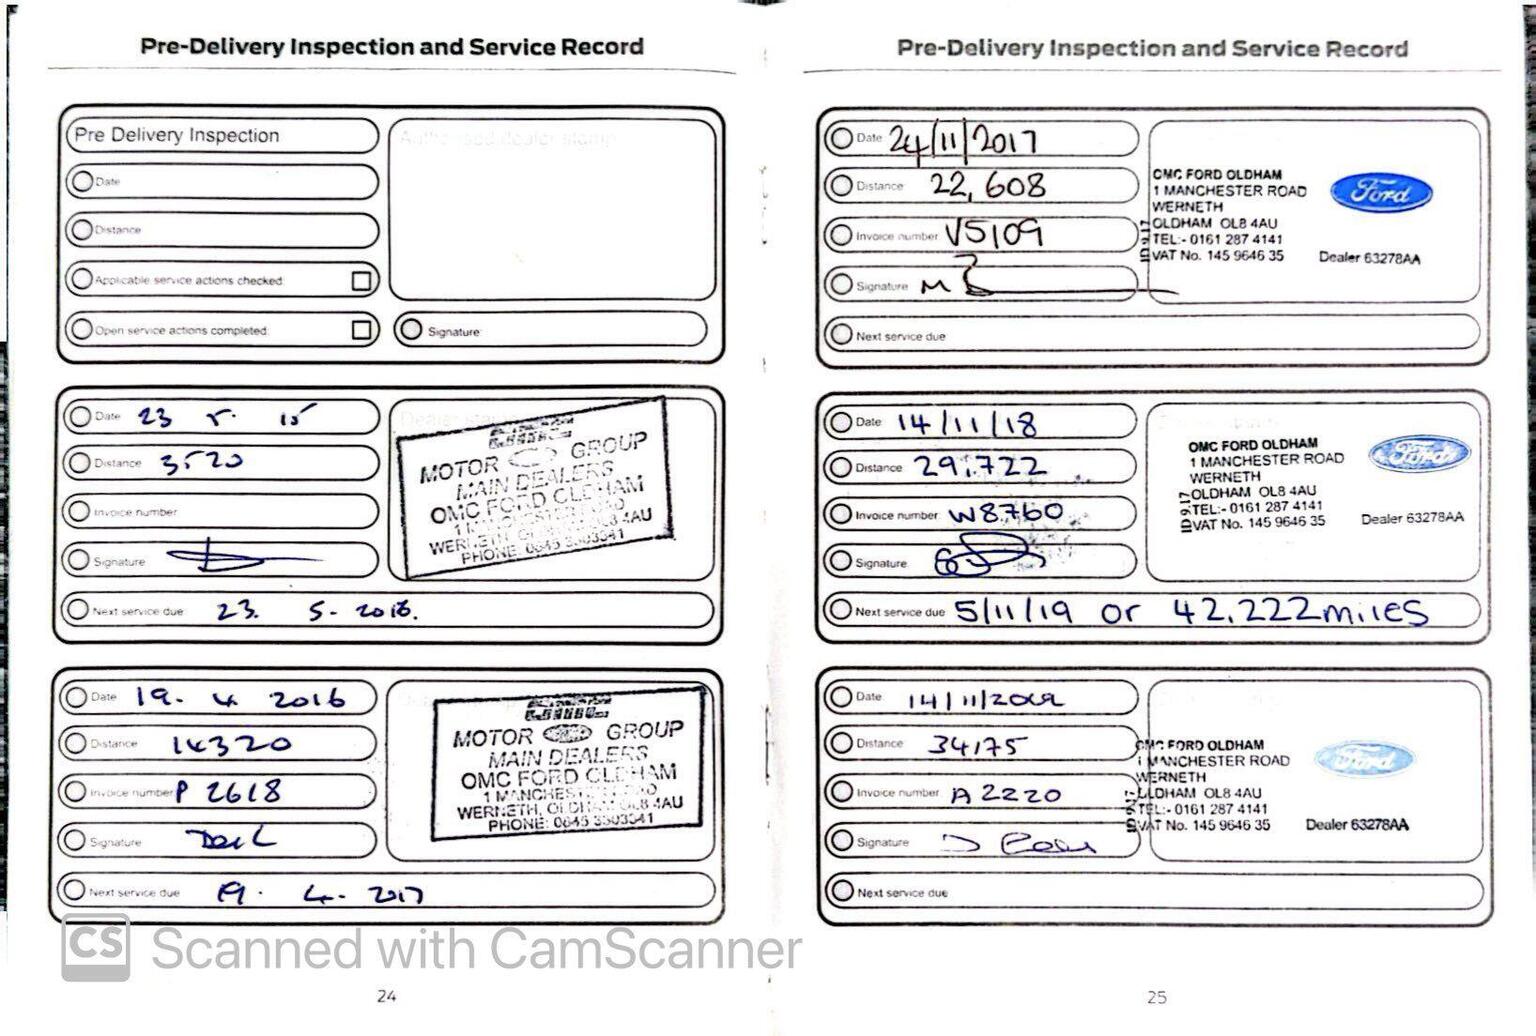 Pre-Delivery Inspection and Service Record
Pre Delivery Inspection
Authorised dealer stamp
Date
Distance
Applicable service actions checked
Open service actions completed
Signature
Date 23 5. 15
Distance 3520
Invoice number
Signature
Next service due 23. 5-2016.
MOTOR GROUP
MAIN DEALERS
OMC FORD OLDHAM
1 MANCHESTER ROAD
WERNETH, OLDHAM OL8 4AU
PHONE: 0845 3303341
Date 19. 4 2016
Distance 14320
Invoice number P 2618
Signature
Next service due 19. 4. 2017
MOTOR Ford GROUP
MAIN DEALERS
OMC FORD OLDHAM
1 MANCHESTER ROAD
WERNETH, OLDHAM OL8 4AU
PHONE: 0845 3303341
CS Scanned with CamScanner
24
Pre-Delivery Inspection and Service Record
Date 24/11/2017
Distance 22,608
Invoice number V5109
Signature
Next service due
OMC FORD OLDHAM
1 MANCHESTER ROAD
WERNETH
OLDHAM OL8 4AU
TEL:- 0161 287 4141
VAT No. 145 9646 35
ID 9.17
Ford
Dealer 63278AA
Date 14/11/18
Distance 29,722
Invoice number W8760
Signature
Next service due 5/11/19 or 42,222miles
OMC FORD OLDHAM
1 MANCHESTER ROAD
WERNETH
OLDHAM OL8 4AU
TEL:- 0161 287 4141
VAT No. 145 9646 35
ID 9.17
Ford
Dealer 63278AA
Date 14/11/2019
Distance 34175
Invoice number A2220
Signature
Next service due
OMC FORD OLDHAM
1 MANCHESTER ROAD
WERNETH
OLDHAM OL8 4AU
TEL:- 0161 287 4141
VAT No. 145 9646 35
Ford
Dealer 63278AA
25